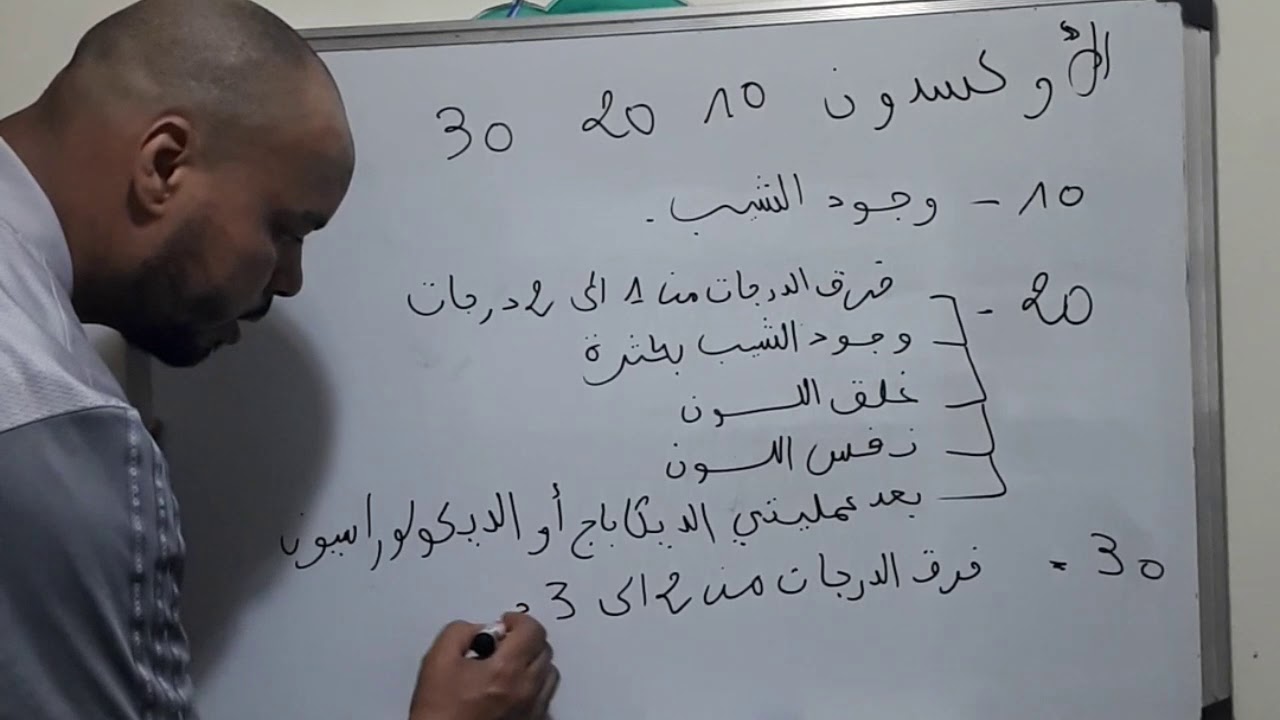 الأوكسدون 10 20 30
10 - وجود الشيب.
20 - فرق الدرجات من 1 الى 2 درجات
وجود الشيب بكثرة
غلق اللون
نفس اللون
بعد عمليتي الديكاباج أو الديكولوراسيون
30 - فرق الدرجات من 2 الى 3